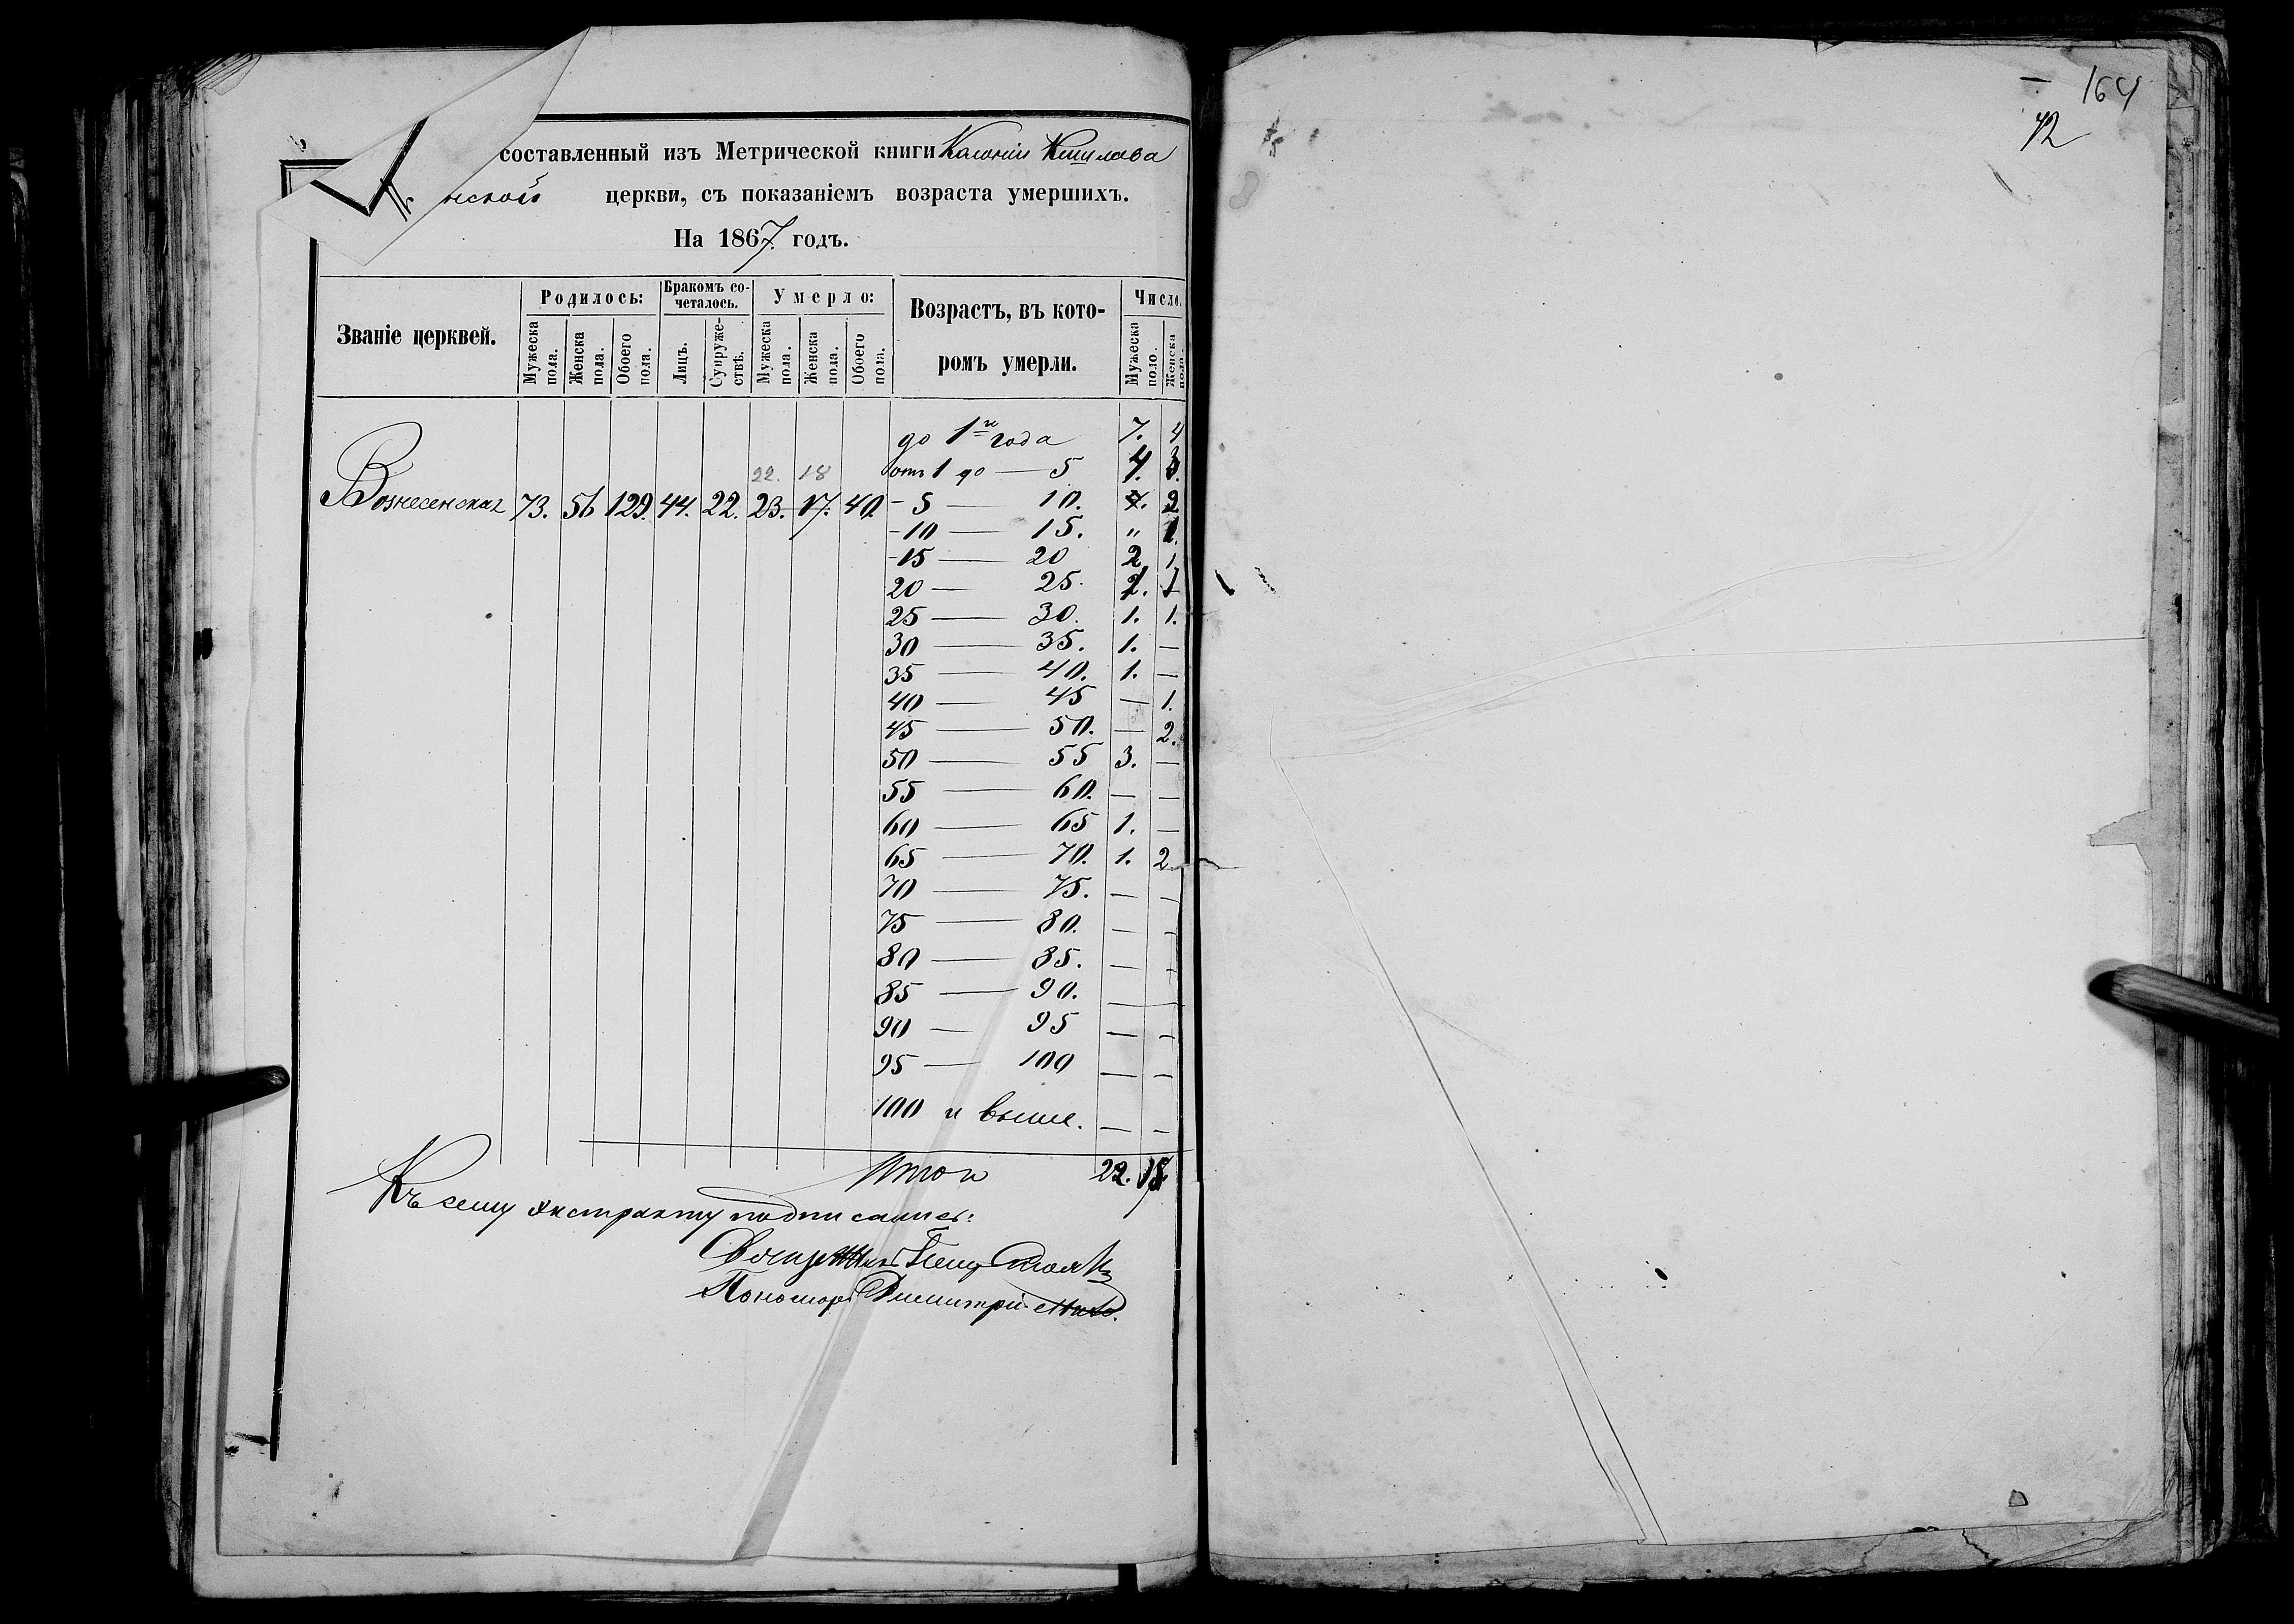 составленный изъ Метрической книги Колоніи
нской церкви, съ показаніемъ возраста умершихъ.
На 1867. годъ.
Званіе церквей. Родилось: Бракомъ со-четалось. Умерло: Возрастъ, въ кото-ромъ умерли. Число.
Мужеска пола. Женска пола. Обоего пола. Лицъ. Супруже-ствъ. Мужеска пола. Женска пола. Обоего пола. Мужеска поло. Женска пола.
до 1го года 7. 4
22. 18 отъ 1 до — 5 4. 3.
Вознесенская 73. 56 129. 44. 22. 23. 17. 40. - 5 — 10. 2
- 10 — 15. " 1.
- 15 — 20 2 1
20 — 25. 2. 1
25 — 30. 1. 1.
30 — 35. 1. —
35 — 40. 1. —
40 — 45 — 1.
45 — 50. — 2.
50 — 55 3. —
55 — 60. — —
60 — 65 1. —
65 — 70. 1. 2
70 — 75. — —
75 — 80. — —
80 — 85. — —
85 — 90. — —
90 — 95 — —
95 — 100 — —
100 и выше. — —
Итого 22. 18
Къ сему экстракту подписались:
Пономарь Димитрій
164
72